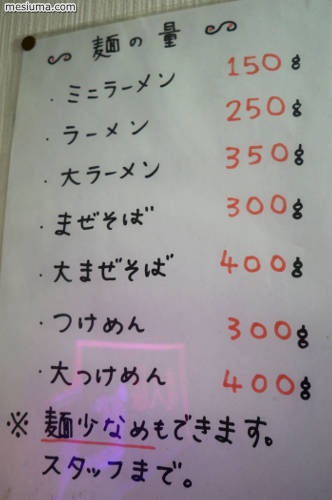 mesiuma.com
麺の量
・ミニラーメン 150g
・ラーメン 250g
・大ラーメン 350g
・まぜそば 300g
・大まぜそば 400g
・つけめん 300g
・大つけめん 400g
※麺少なめもできます。
スタッフまで。